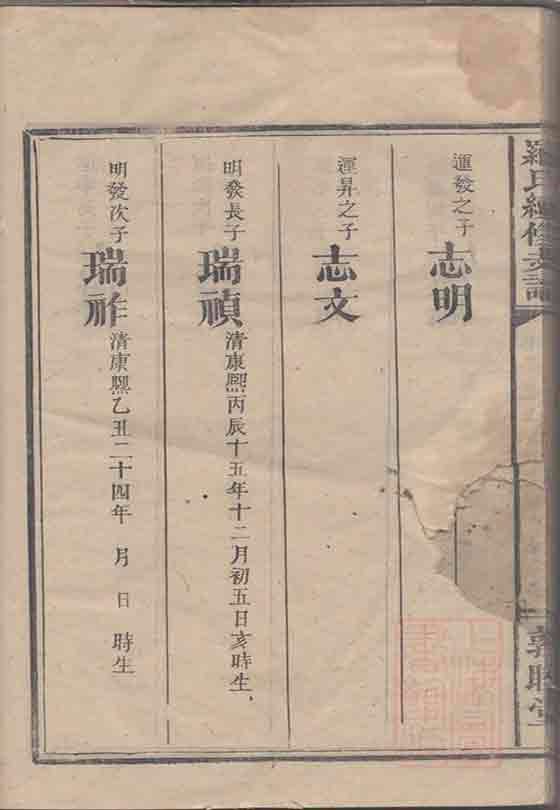 羅氏續修支譜
敦睦堂
運發之子 志明
運昇之子 志文
明發長子 瑞禎 清康熙丙辰十五年十二月初五日亥時生
明發次子 瑞祚 清康熙乙丑二十四年 月 日 時生